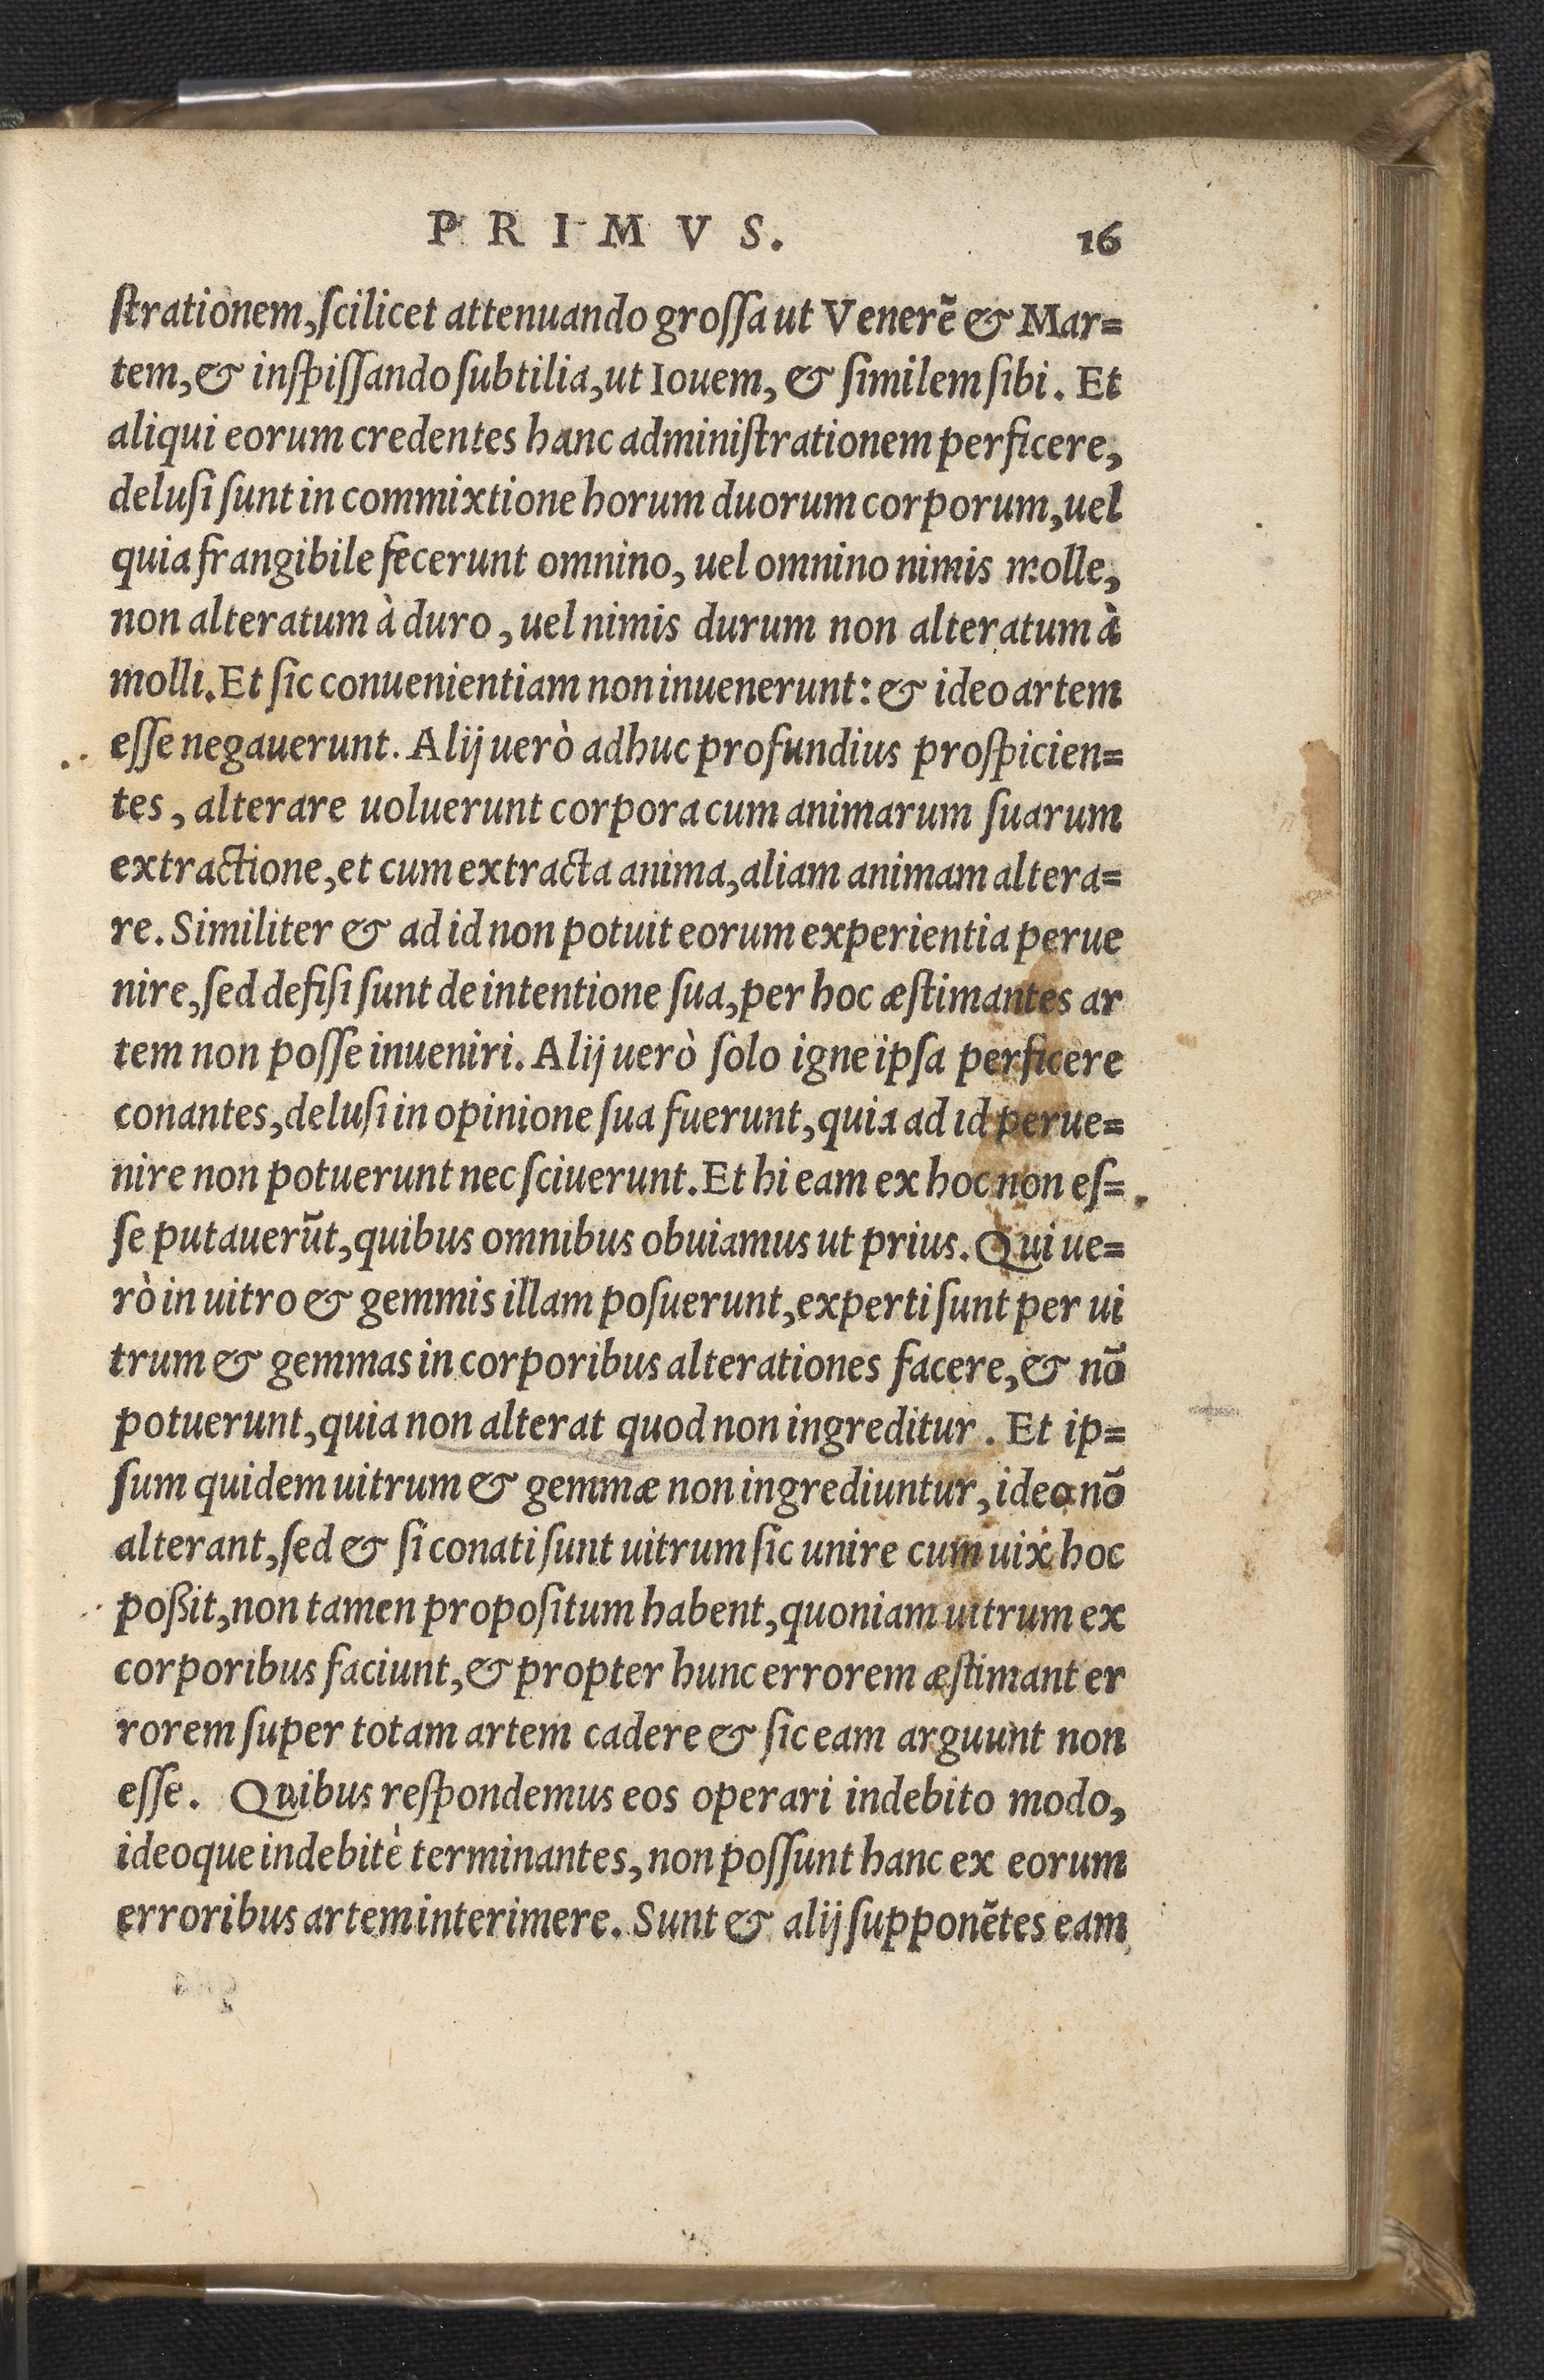 PRIMVS. 16
ſtrationem, ſcilicet attenuando groſſa ut Venerē & Mar=
tem, & inſpiſſando ſubtilia, ut Iouem, & ſimilem ſibi. Et
aliqui eorum credentes hanc adminiſtrationem perficere,
deluſi ſunt in commixtione horum duorum corporum, uel
quia frangibile fecerunt omnino, uel omnino nimis molle,
non alteratum à duro, uel nimis durum non alteratum à
molli. Et ſic conuenientiam non inuenerunt: & ideo artem
eſſe negauerunt. Alij uerò adhuc profundius proſpicien=
tes, alterare uoluerunt corpora cum animarum ſuarum
extractione, et cum extracta anima, aliam animam altera=
re. Similiter & ad id non potuit eorum experientia perue
nire, ſed defiſi ſunt de intentione ſua, per hoc æſtimantes ar
tem non poſſe inueniri. Alij uerò ſolo igne ipſa perficere
conantes, deluſi in opinione ſua fuerunt, quia ad id perue=
nire non potuerunt nec ſciuerunt. Et hi eam ex hoc non eſ=
ſe putauerūt, quibus omnibus obuiamus ut prius. Qui ue=
rò in uitro & gemmis illam poſuerunt, experti ſunt per ui
trum & gemmas in corporibus alterationes facere, & nō
potuerunt, quia non alterat quod non ingreditur. Et ip=
ſum quidem uitrum & gemmæ non ingrediuntur, ideo nō
alterant, ſed & ſi conati ſunt uitrum ſic unire cum uix hoc
poßit, non tamen propoſitum habent, quoniam uitrum ex
corporibus faciunt, & propter hunc errorem æſtimant er
rorem ſuper totam artem cadere & ſic eam arguunt non
eſſe. Quibus reſpondemus eos operari indebito modo,
ideoque indebitè terminantes, non poſſunt hanc ex eorum
erroribus artem interimere. Sunt & alij ſupponētes eam